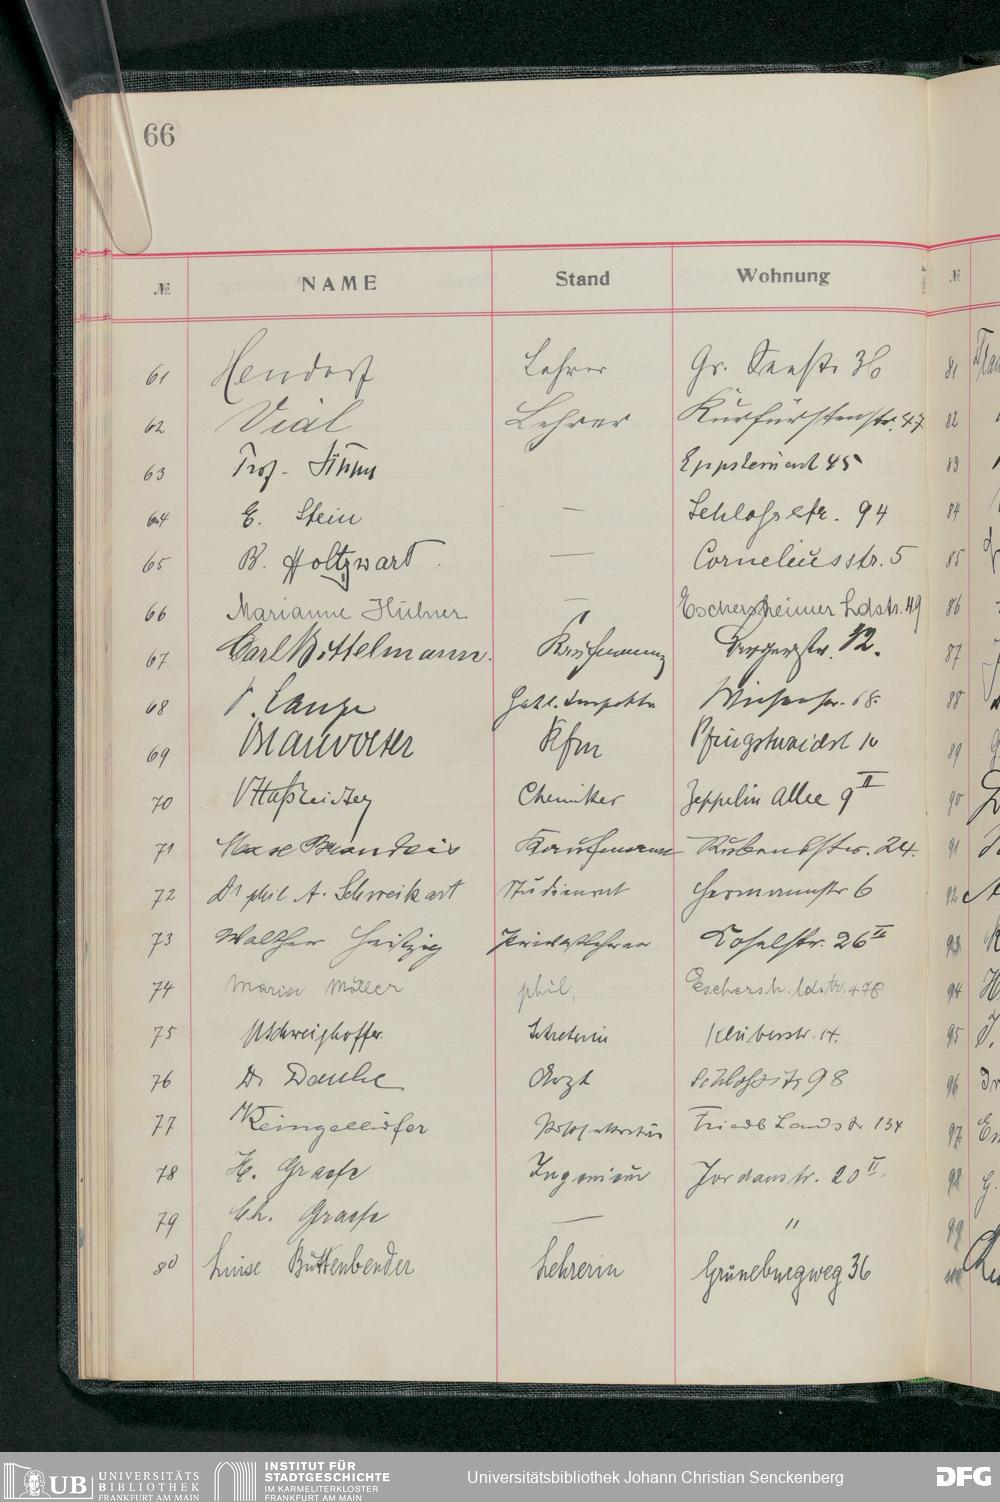 66
№ NAME Stand Wohnung №
61 Hendorf Lehrer Gr. Seestr. 36 81
62 Vial Lehrer Kurfürstenstr. 47 82
63 Prof. Eppsteinerstr 45 83
64 E. Stein — Schlossstr. 94 84
65 B. Holtzwart — Corneliusstr. 5 85
66 Marianne Hübner — Eschersheimer Ldstr. 49 86
67 Carl Bittelmann. Kaufmann 12. 87
68 Lange Wiesenstr. 68. 88
69 Kfm Pfingstweidst 10 89
70 Chemiker Zeppelin Allee 9 II 90
71 Max Brandeis Kaufmann Rubensstr. 24. 91
72 Dr phil A. Schweikart Studienrat Hermannstr 6 92
73 Walther Privatlehrer 26 II 93
74 Marise Möller phil. Eschersh. Ldstr. 478 94
75 Schweighoffer Sekretärin Klüberstr. 14. 95
76 Dr Daube Arzt Schlossstr 98 96
77 Friedb Landstr 134 97
78 H. Graefe Ingenieur Jordanstr. 20 II. 98
79 Ch. Graefe — " 99
80 Luise Büttenbender Lehrerin Grüneburgweg 36
UB UNIVERSITÄTS BIBLIOTHEK FRANKFURT AM MAIN
INSTITUT FÜR STADTGESCHICHTE IM KARMELITERKLOSTER FRANKFURT AM MAIN
Universitätsbibliothek Johann Christian Senckenberg
DFG